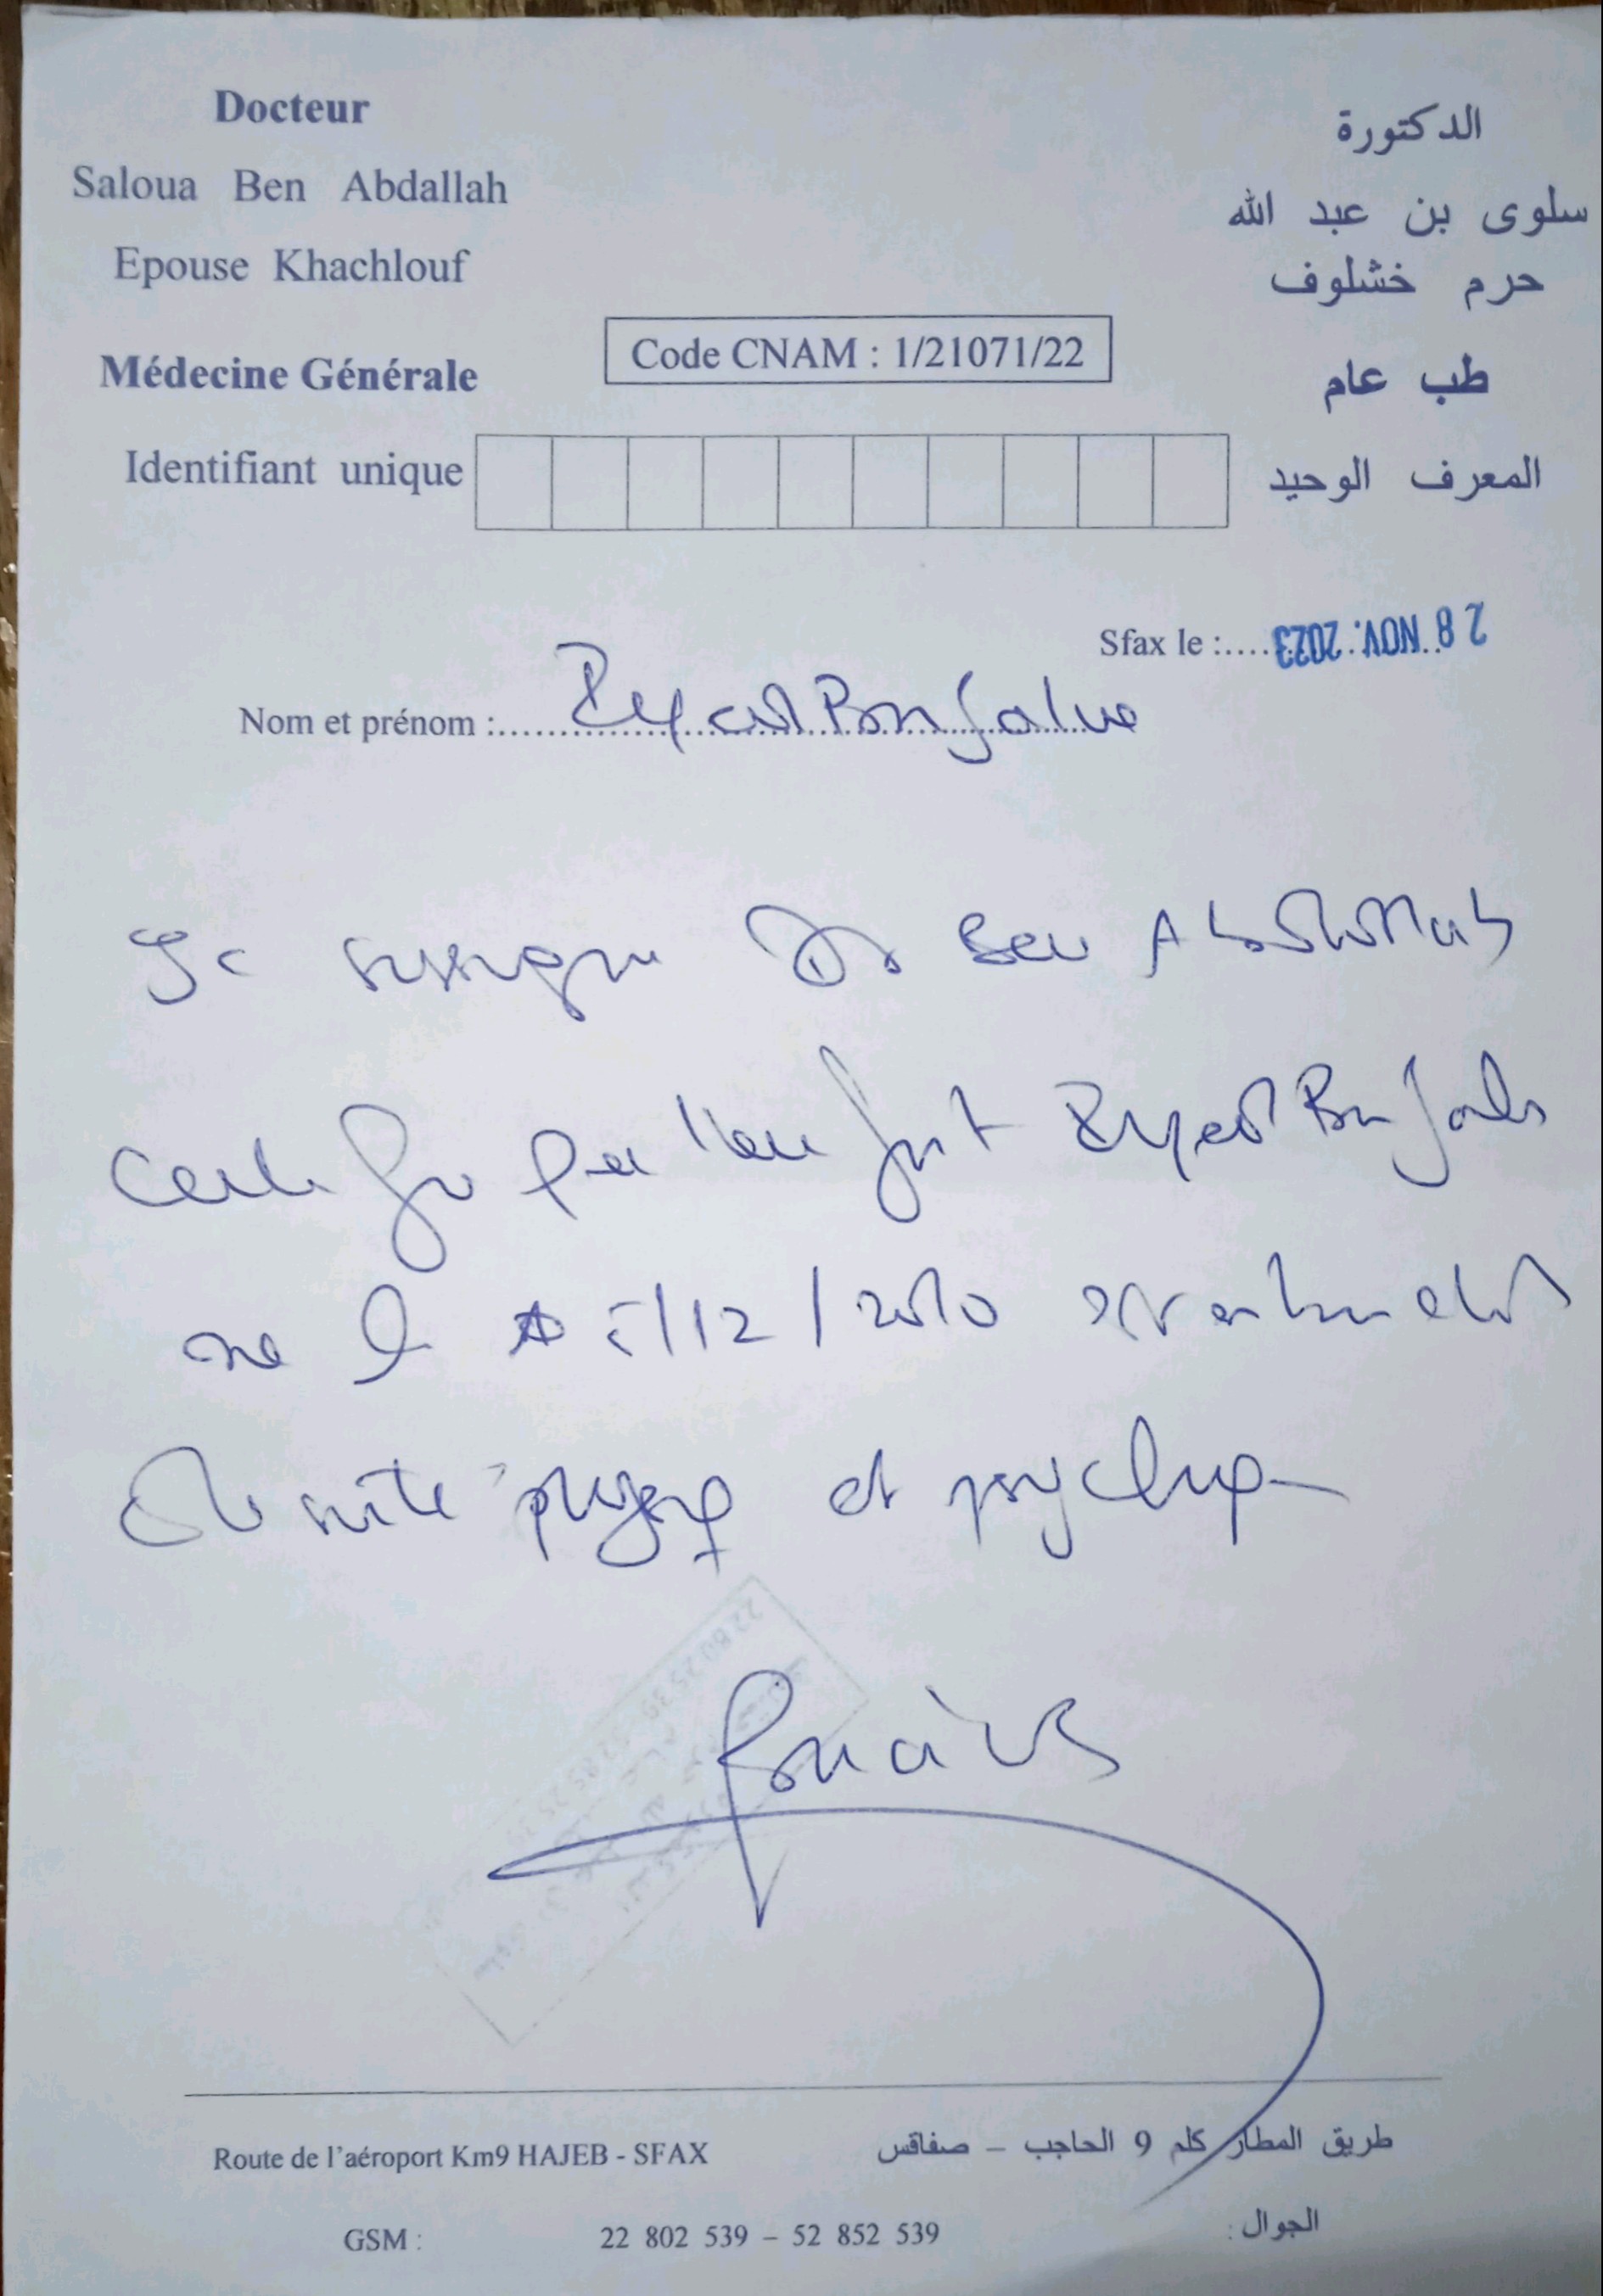 Docteur
Saloua Ben Abdallah
Epouse Khachlouf
Médecine Générale
الدكتورة
سلوى بن عبد الله
حرم خشلوف
طب عام
Code CNAM : 1/21071/22
Identifiant unique
المعرف الوحيد
Sfax le : 28 NOV. 2023
Nom et prénom :
Je soussigné Dr Ben Abdallah
certifie que l'enfant
né le /12/2010 est en bon état
de santé physique et psychique
Route de l'aéroport Km9 HAJEB - SFAX
طريق المطار كلم 9 الحاجب – صفاقس
GSM : 22 802 539 – 52 852 539 الجوال :